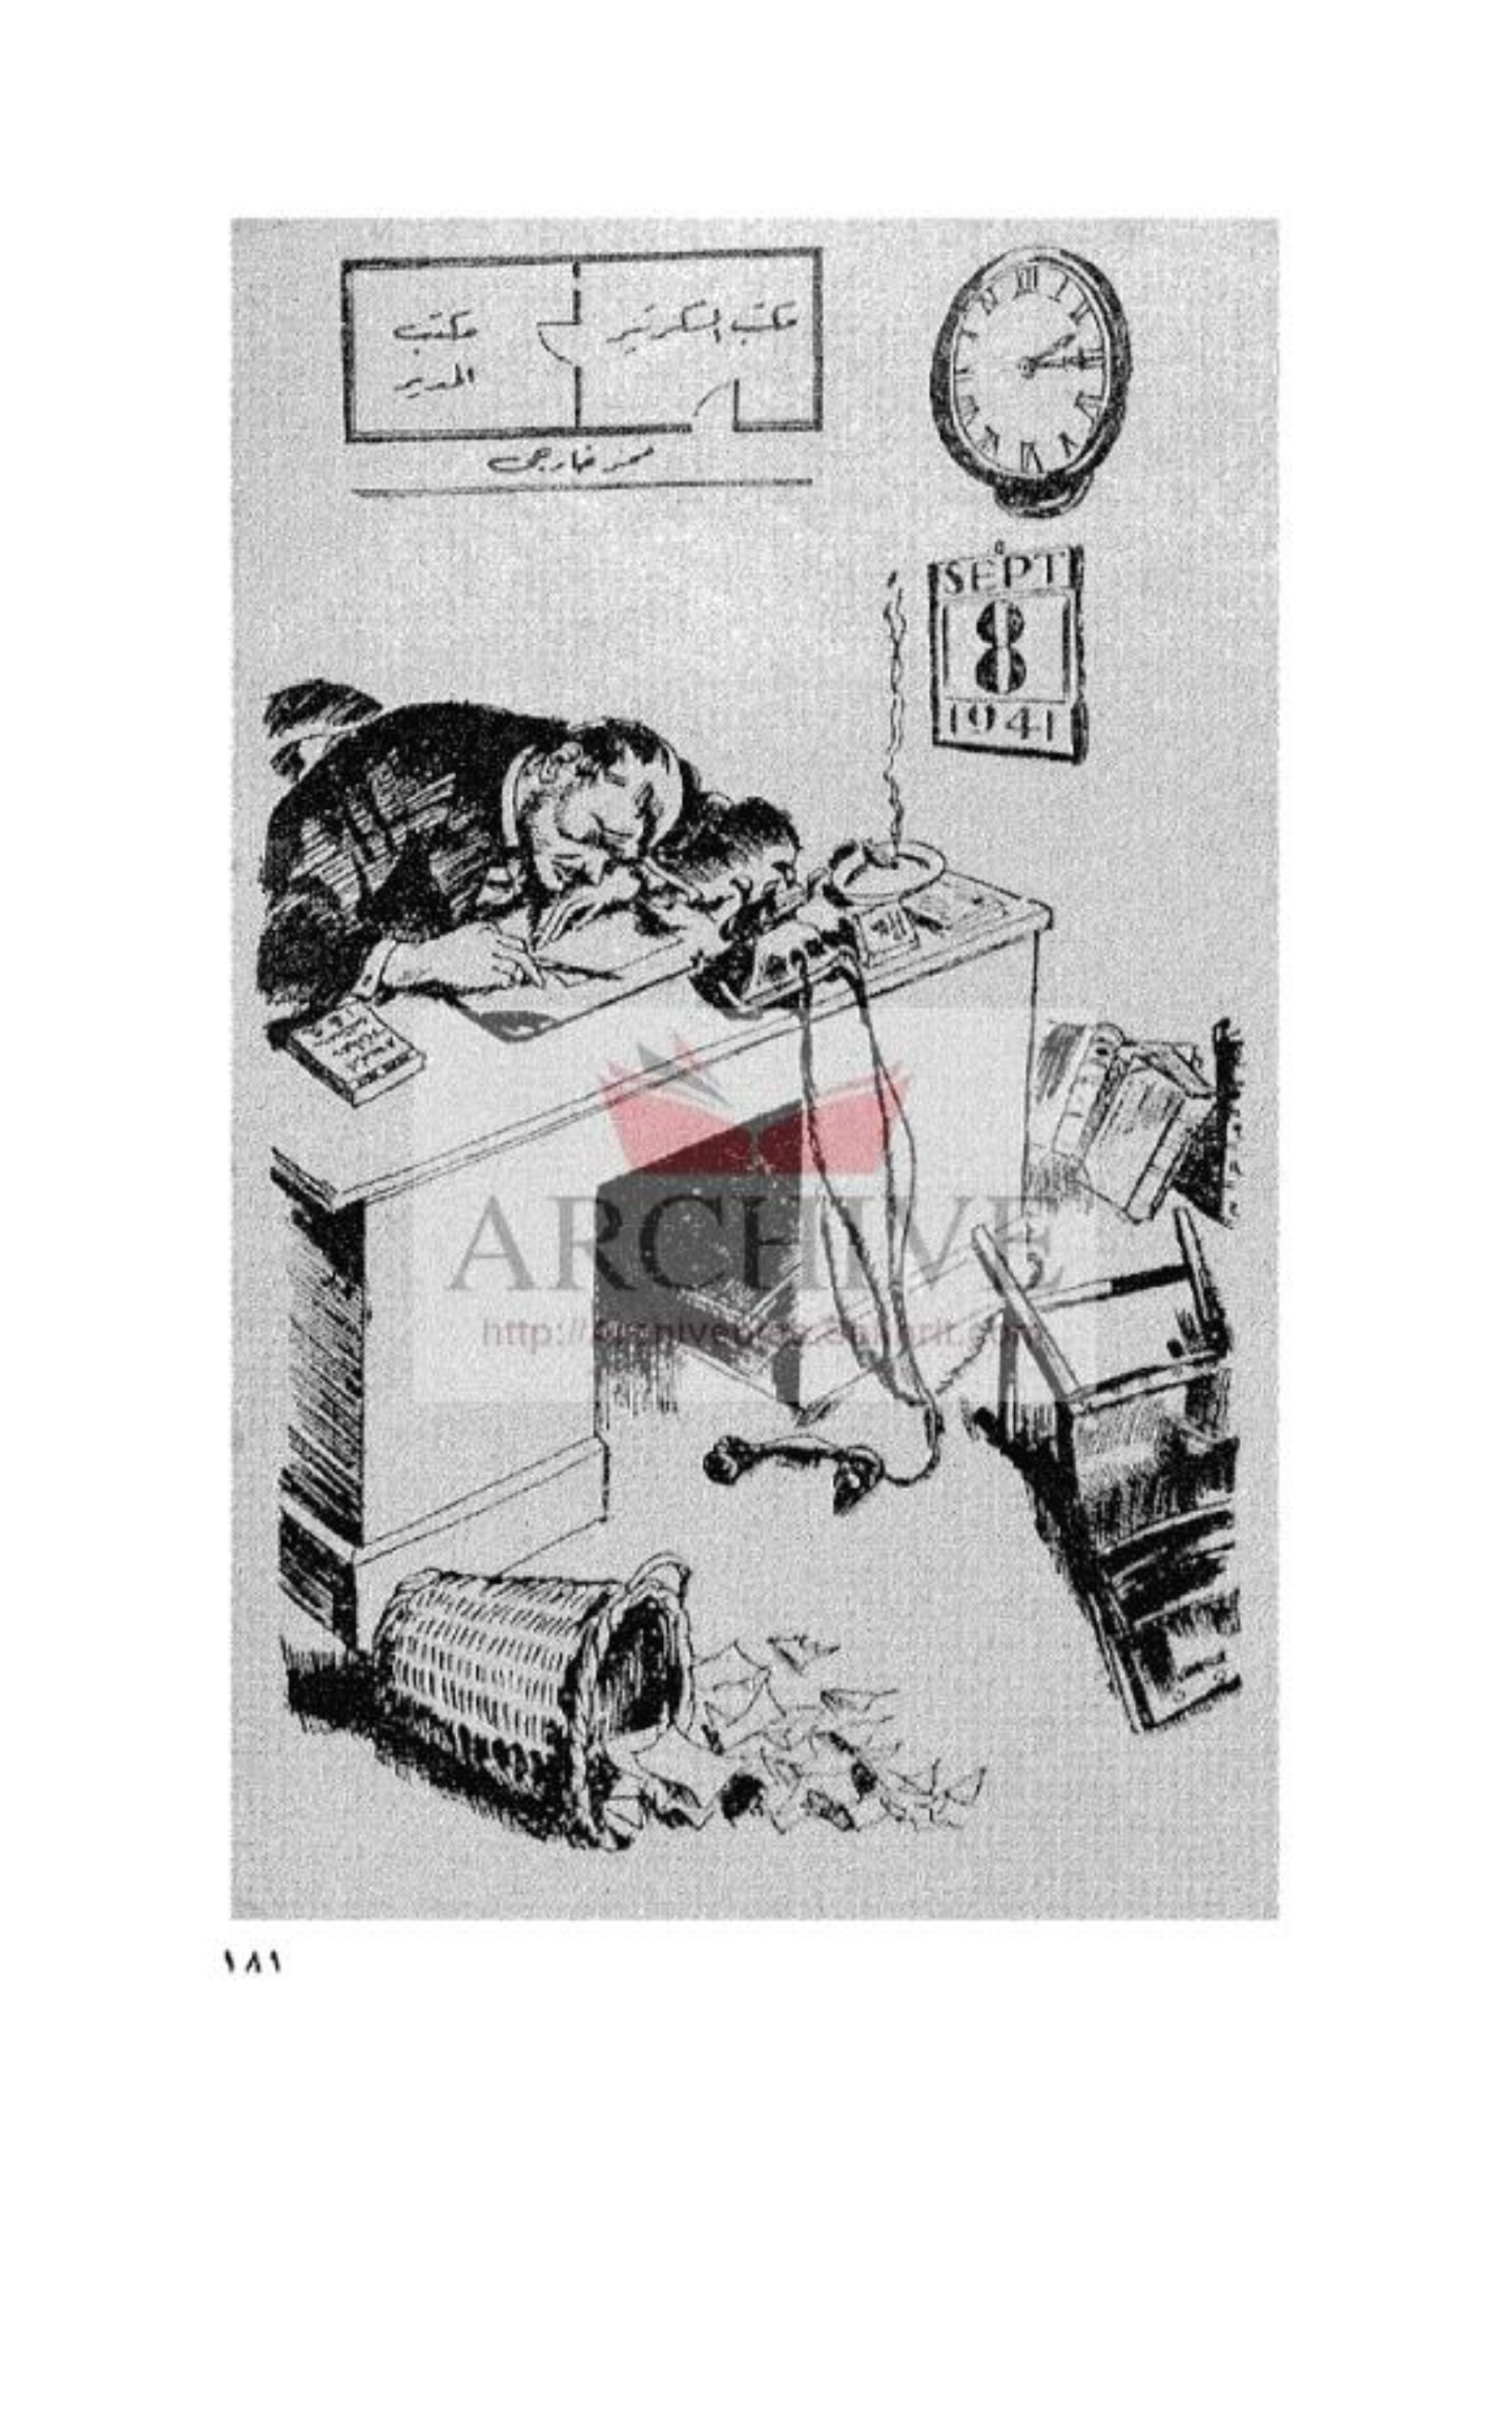 مكتب السكرتير
مكتب
المدير
ممر خارجى
SEPT
8
1941
ARCHIVE
١٨١